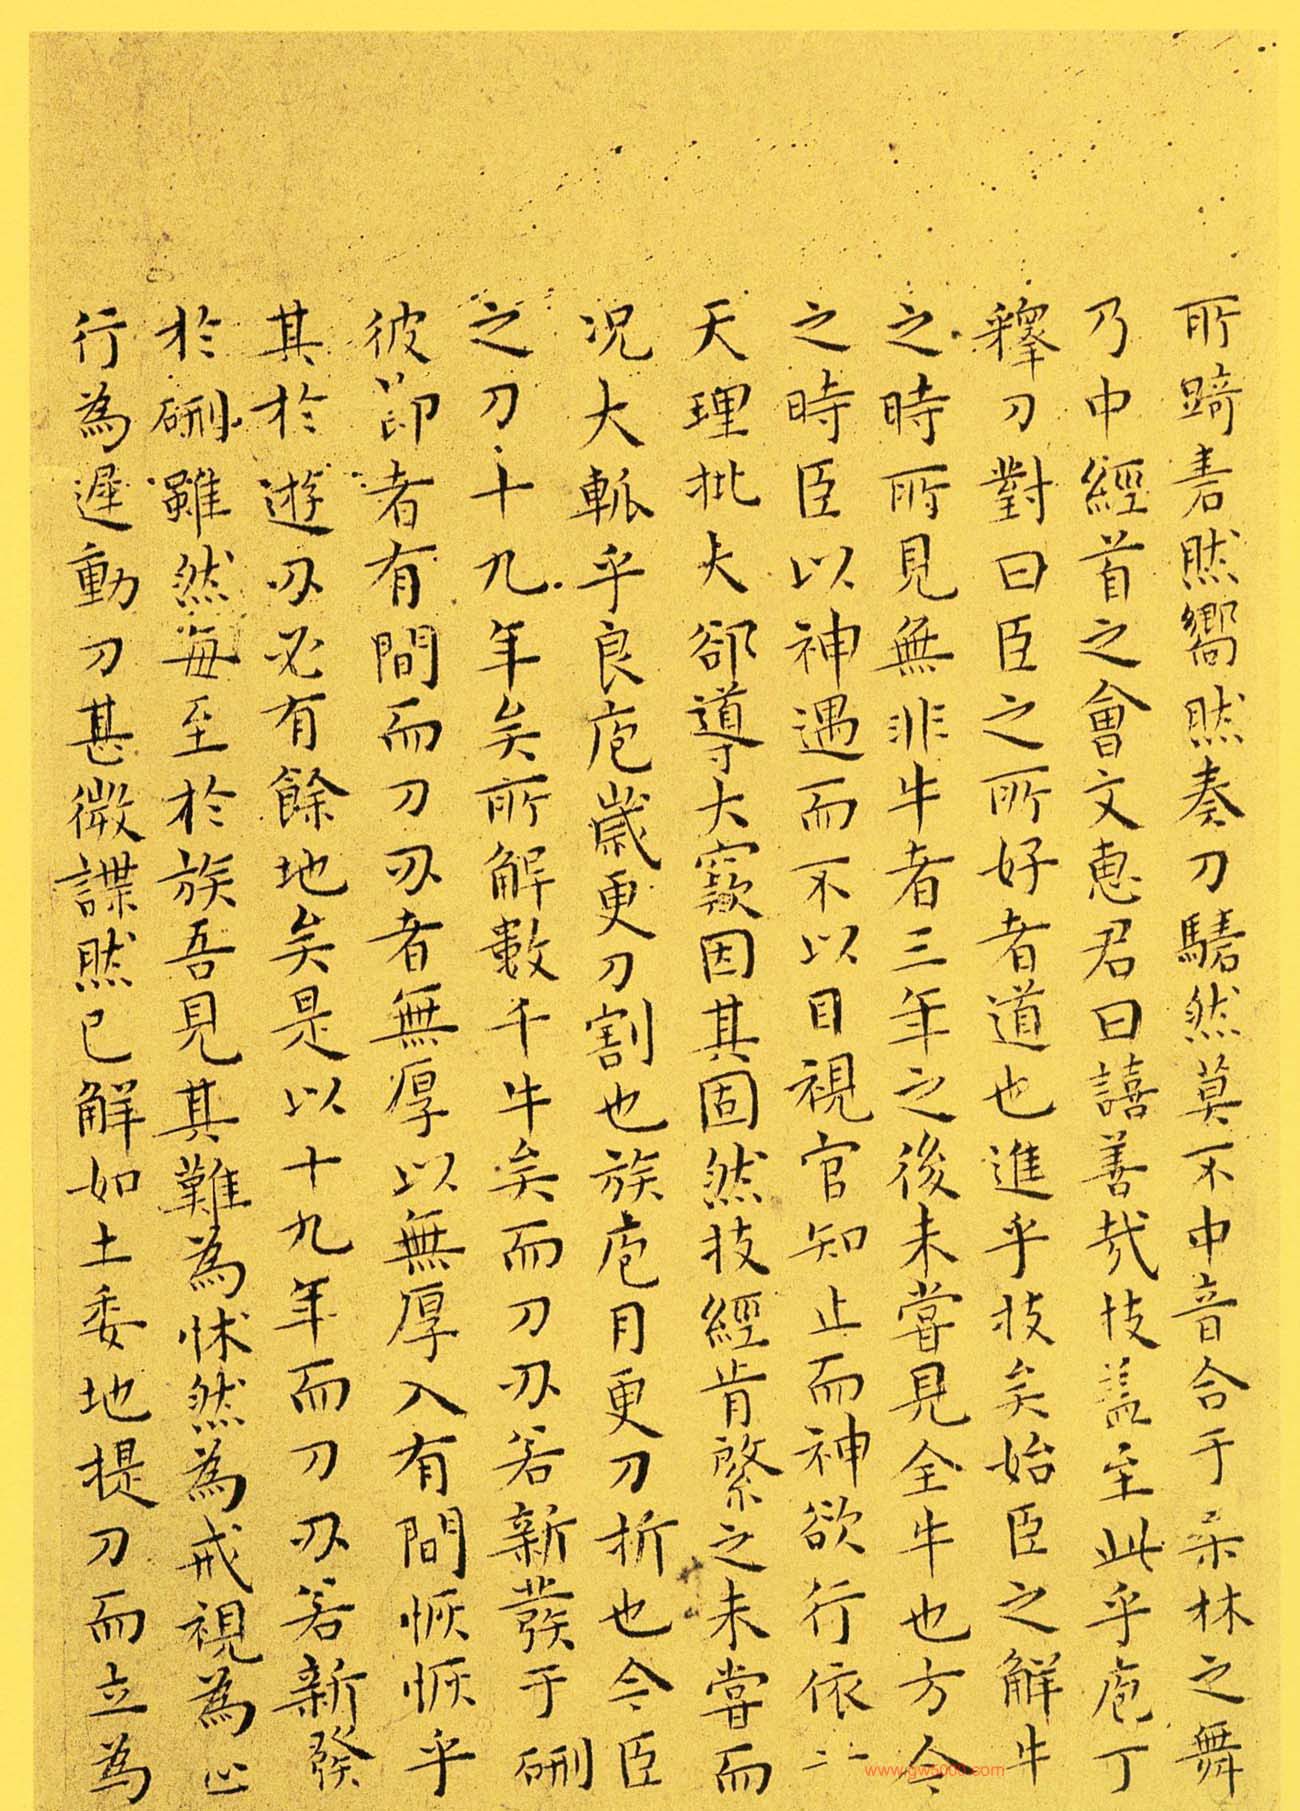 所踦砉然嚮然奏刀騞然莫不中音合于桑林之舞
乃中經首之會文惠君曰譆善哉技盖至此乎庖丁
釋刀對曰臣之所好者道也進乎技矣始臣之解牛
之時所見無非牛者三年之後未嘗見全牛也方今
之時臣以神遇而不以目視官知止而神欲行依
天理批大郤導大窾因其固然技經肯綮之未嘗而
况大軱乎良庖歲更刀割也族庖月更刀折也今臣
之刀十九年矣所解數千牛矣而刀刃若新發于硎
彼節者有間而刀刃者無厚以無厚入有間恢恢乎
其於遊刃必有餘地矣是以十九年而刀刃若新發
於硎雖然每至於族吾見其難為怵然為戒視為止
行為遲動刀甚微謋然已解如土委地提刀而立為